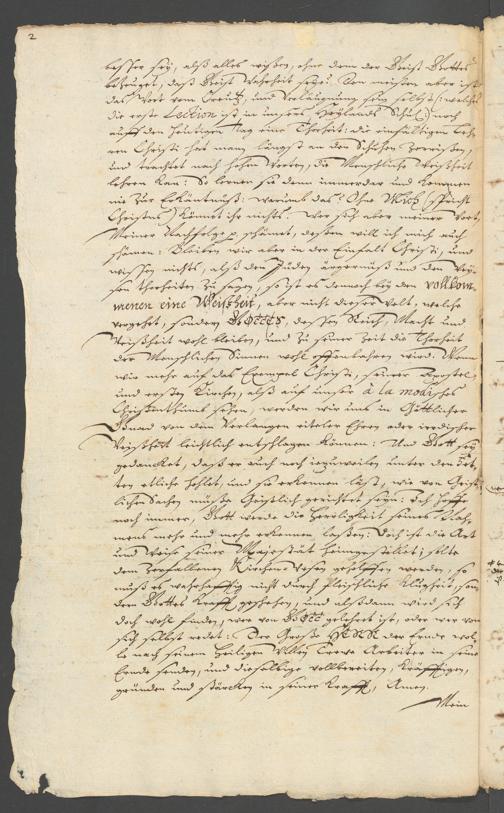 2
besser sey, alß alles wißen, ohne dem der Geist Gottes
bezeuget, daß Geist Wahrheit seye. Den meisten aber ist
das Wort vom Creutz, und Verläugnung sein selbst (: welches
die erste Lection ist in unsers Heylands Schul :) noch
auff den heutigen tag eine Thorheit: die einfältigen Leh-
ren Christi hat man längst an den Schuhen zerrißen,
und trachtet nach hohen Worten, die Menschliche Weißheit
lehren kan: So lernen sie dann immerdar und kommen
nie zur Erkäntnuß: warumb das? Ohne Mich (spricht
Christus) könnet ihr nichts. Wer sich aber meiner Wort,
Meiner Nachfolge p. schämet, deßen will ich mich auch
schämen: Bleiben wir aber in der Einfalt Christi, und
wißen nichts, alß den Juden ärgernüß und den
Thorheiten zu sagen, so ist es dennoch bey den vollkom-
menen eine Weißheit, aber nicht dieser Welt, welche
vergehet, sondern GOTTES, deßen Reich, Macht und
Weißheit wohl bleiben, und zu seiner Zeit die Thorheit
der Menschlichen Sinnen wohl offenbahren wird. Wenn
wir mehr auf das Exempel Christi, seiner Apostel
und ersten Kirchen, alß auf unser à la modisches
Christenthumb sehen, werden wir uns in Göttlicher
Gnad von dem Verlangen eiteler Ehren oder irrdischer
Weißheit leichtlich entschlagen können: Und Gott sey
gedancket, daß er auch noch iezuweilen unter den
etliche hohlet, und sie erkennen läst, wie von Geist-
lichen Sachen müße Geistlich gerichtet seyn: Ich hoffe
noch immer, Gott werde die Herrligkeit seines Nah-
mens mehr und mehr erkennen laßen: doch ist die Art
und Weise seiner Majestät heimgestellet; sollte
dem zerfallenen Kirchen Wesen geholffen werden, so
muß es wahrhafftig nicht durch Fleischliche Klugheit, son-
dern Gottes Krafft geschehen, und alßdann wird sich
doch wohl finden, wer von GOTT gelehret ist, oder wer von
sich selbst redet: Der Große HERR der Ernde wol-
le nach seinem Heiligen Willen Treue Arbeiter in seine
Ernde senden, und dieselbige vollbereiten, kräfftigen,
gründen und stärcken in seiner Krafft, Amen.
Mein